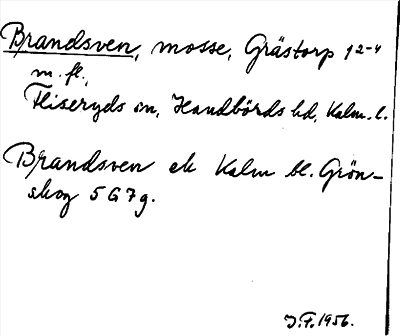 Brandsven, mosse, Grästorp 12-4
m. fl.,
Fliseryds sn, Handbörds hd, Kalm. l.
Brandsven ek Kalm bl. Grön-
skog 5G7g.
J.F. 1956.